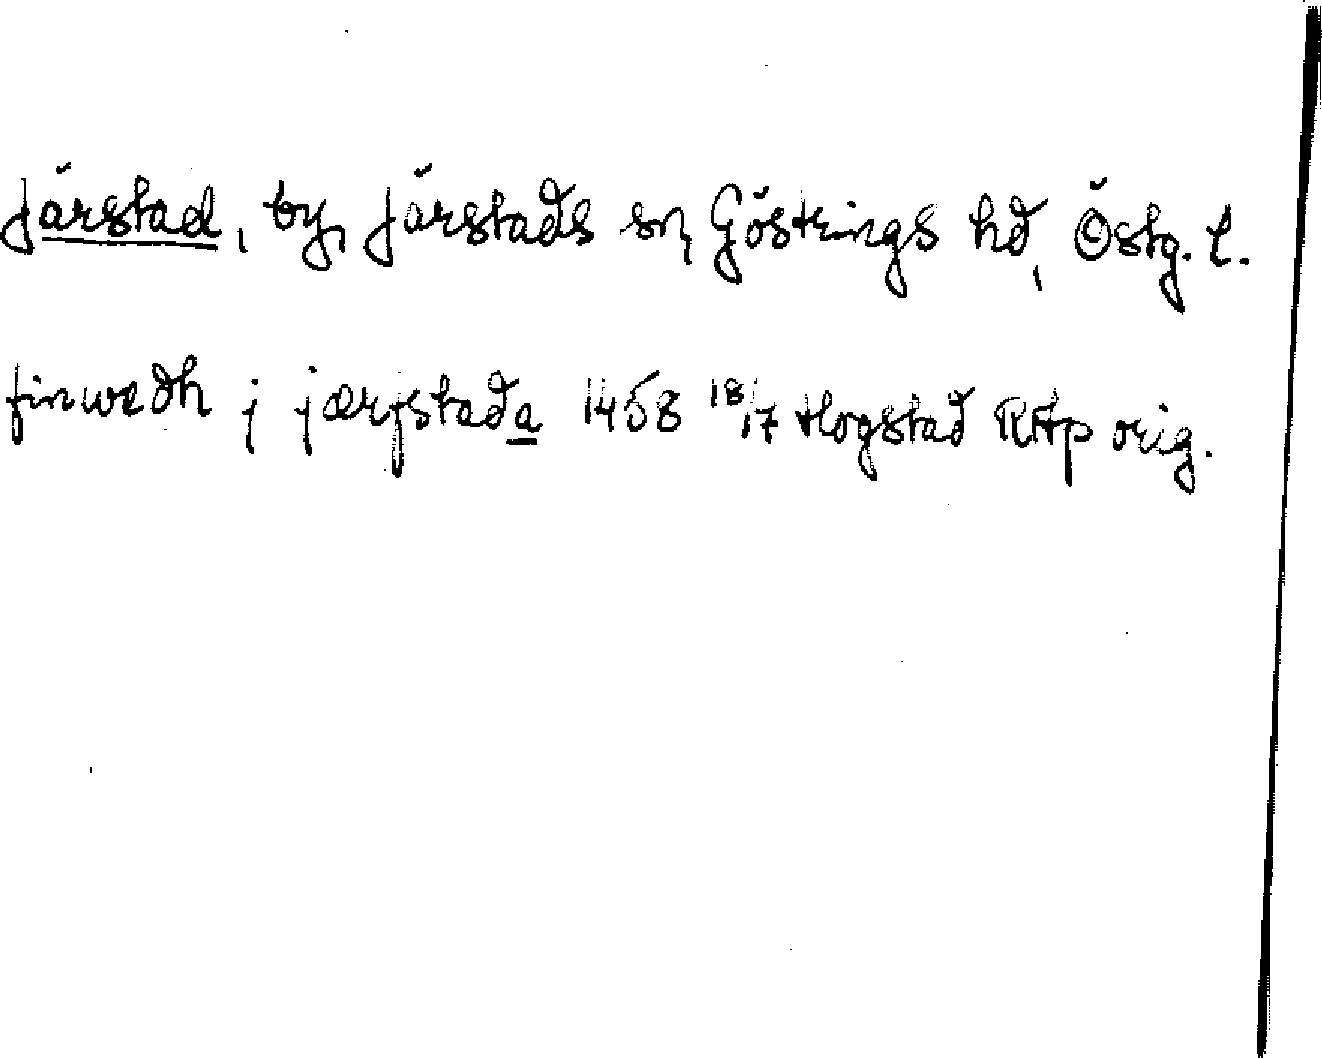 Järstad, by, Järstads sn, Göstrings hd, Östg. l.
finwedh j jærfstada 1458 18/7 Hogstad RAp orig.